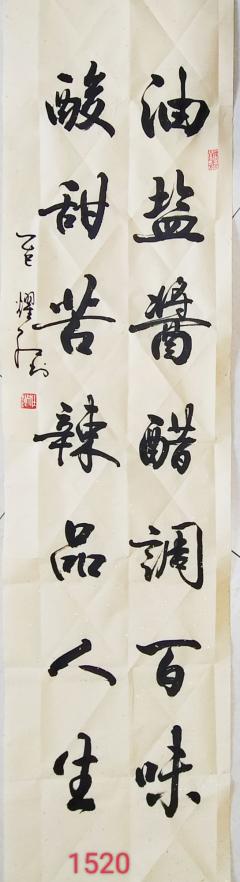 油盐醬醋調百味
酸甜苦辣品人生
1520